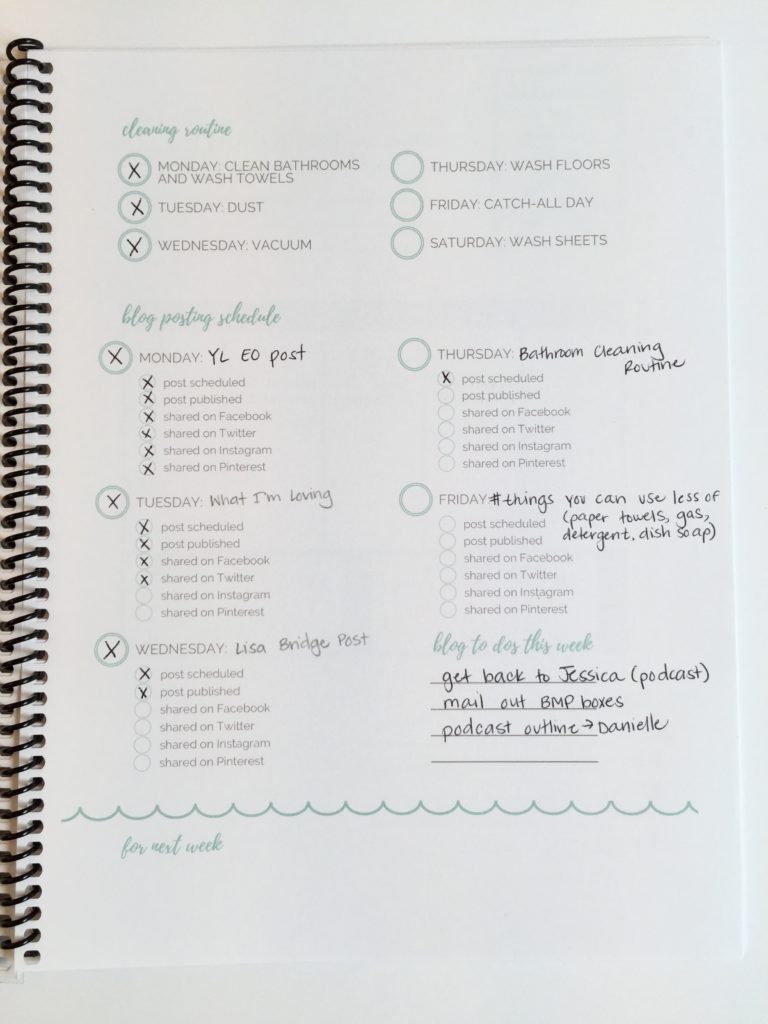 cleaning routine
MONDAY: CLEAN BATHROOMS
AND WASH TOWELS
TUESDAY: DUST
WEDNESDAY: VACUUM
THURSDAY: WASH FLOORS
FRIDAY: CATCH-ALL DAY
SATURDAY: WASH SHEETS
blog posting schedule
MONDAY: YL EO post
post scheduled
post published
shared on Facebook
shared on Twitter
shared on Instagram
shared on Pinterest
TUESDAY: What I'm Loving
post scheduled
post published
shared on Facebook
shared on Twitter
shared on Instagram
shared on Pinterest
WEDNESDAY: Lisa Bridge Post
post scheduled
post published
shared on Facebook
shared on Twitter
shared on Instagram
shared on Pinterest
THURSDAY: Bathroom Cleaning
Routine
post scheduled
post published
shared on Facebook
shared on Twitter
shared on Instagram
shared on Pinterest
FRIDAY: #things you can use less of
(paper towels, gas,
detergent, dish soap)
post scheduled
post published
shared on Facebook
shared on Twitter
shared on Instagram
shared on Pinterest
blog to dos this week
get back to Jessica (podcast)
mail out BMP boxes
podcast outline → Danielle
for next week